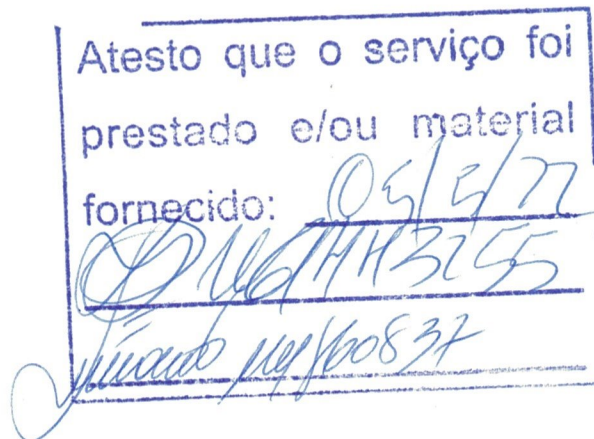 Atesto que o serviço foi
prestado e/ou material
fornecido: 05/5/22
3255
860837